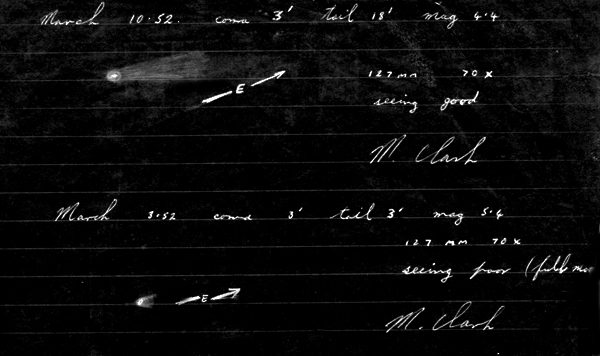 March 10.52. coma 3' tail 18' mag 4.4
E
127mm 70x
seeing good
M. Clark
March 3.52 coma 3' tail 3' mag 5.4
127 mm 70x
seeing poor (full mo
E
M. Clark